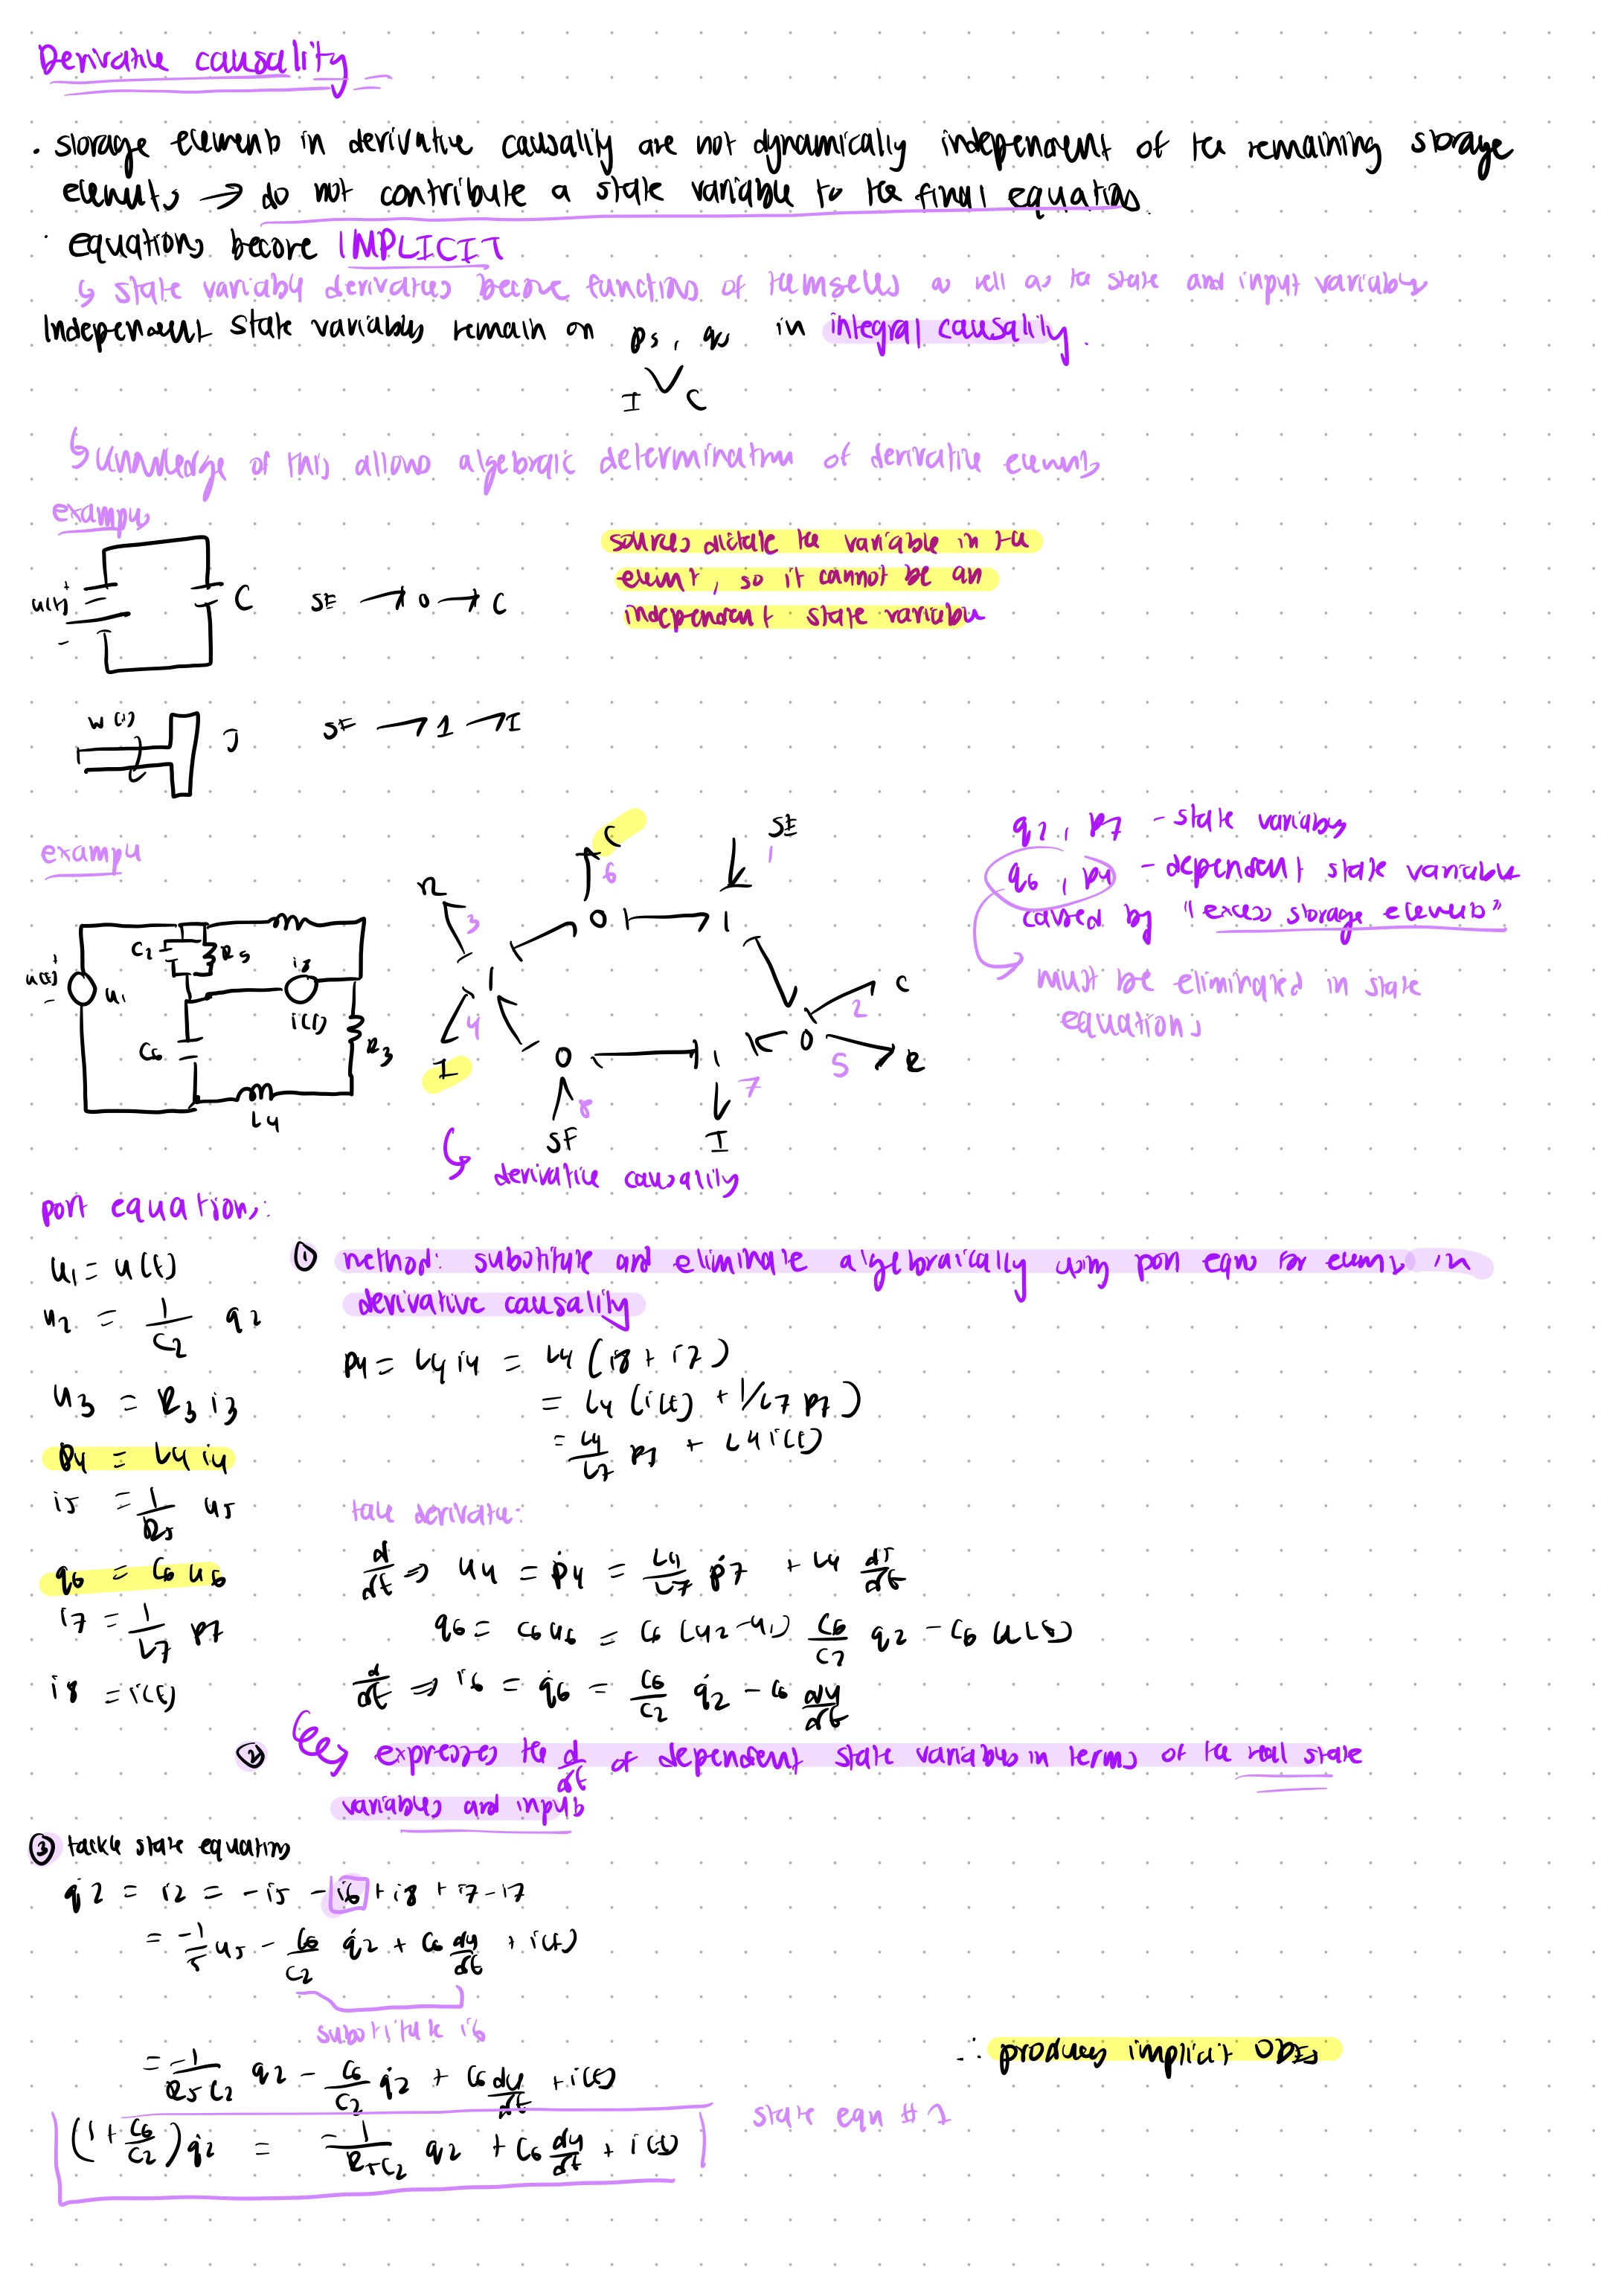 Derivative causality
· storage elements in derivative causality are not dynamically independent of the remaining storage
elements → do not contribute a state variable to the final equations.
· equations become IMPLICIT
↳ state variable derivatives become functions of themselves as well as the state and input variables
Independent state variables remain on ps, qs in integral causality.
I C
↳ knowledge of this allows algebraic determination of derivative elements
example
u(t) + - C SE → 0 → C
sources dictate the variable in the
element, so it cannot be an
independent state variable
w(t) J SF → 1 → I
example
u(t) + - u1 C2 R5 i8 i(t) C6 R3 L4
R 3 C 6 SE 1
0 1
1 C 2
I 4 0 1 7 0 5 R
SF 8 I
↳ derivative causality
q2, p7 - state variables
q6, p4 - dependent state variable
caused by "excess storage elements"
must be eliminated in state
equations
port equations:
u1 = u(t)
u2 = 1/C2 q2
u3 = R3 i3
p4 = L4 i4
i5 = 1/R5 u5
q6 = C6 u6
i7 = 1/L7 p7
i8 = i(t)
① method: substitute and eliminate algebraically using port eqns for elements in
derivative causality
p4 = L4 i4 = L4 (i8 + i7)
= L4 (i(t) + 1/L7 p7)
= L4/L7 p7 + L4 i(t)
take derivative:
d/dt ⇒ u4 = ṗ4 = L4/L7 ṗ7 + L4 di/dt
q6 = C6 u6 = C6 (u2 - u1) C6/C2 q2 - C6 u(t)
d/dt ⇒ i6 = q̇6 = C6/C2 q̇2 - C6 du/dt
② expresses the d/dt of dependent state variables in terms of the real state
variables and inputs
③ tackle state equations
q̇2 = i2 = -i5 - i6 + i8 + i7 - i7
= -1/5 u5 - C6/C2 q̇2 + C6 du/dt + i(t)
substitute i6
= -1/R5C2 q2 - C6/C2 q̇2 + C6 du/dt + i(t)
∴ produces implicit ODEs
(1 + C6/C2) q̇2 = -1/R5C2 q2 + C6 du/dt + i(t)
state eqn #1